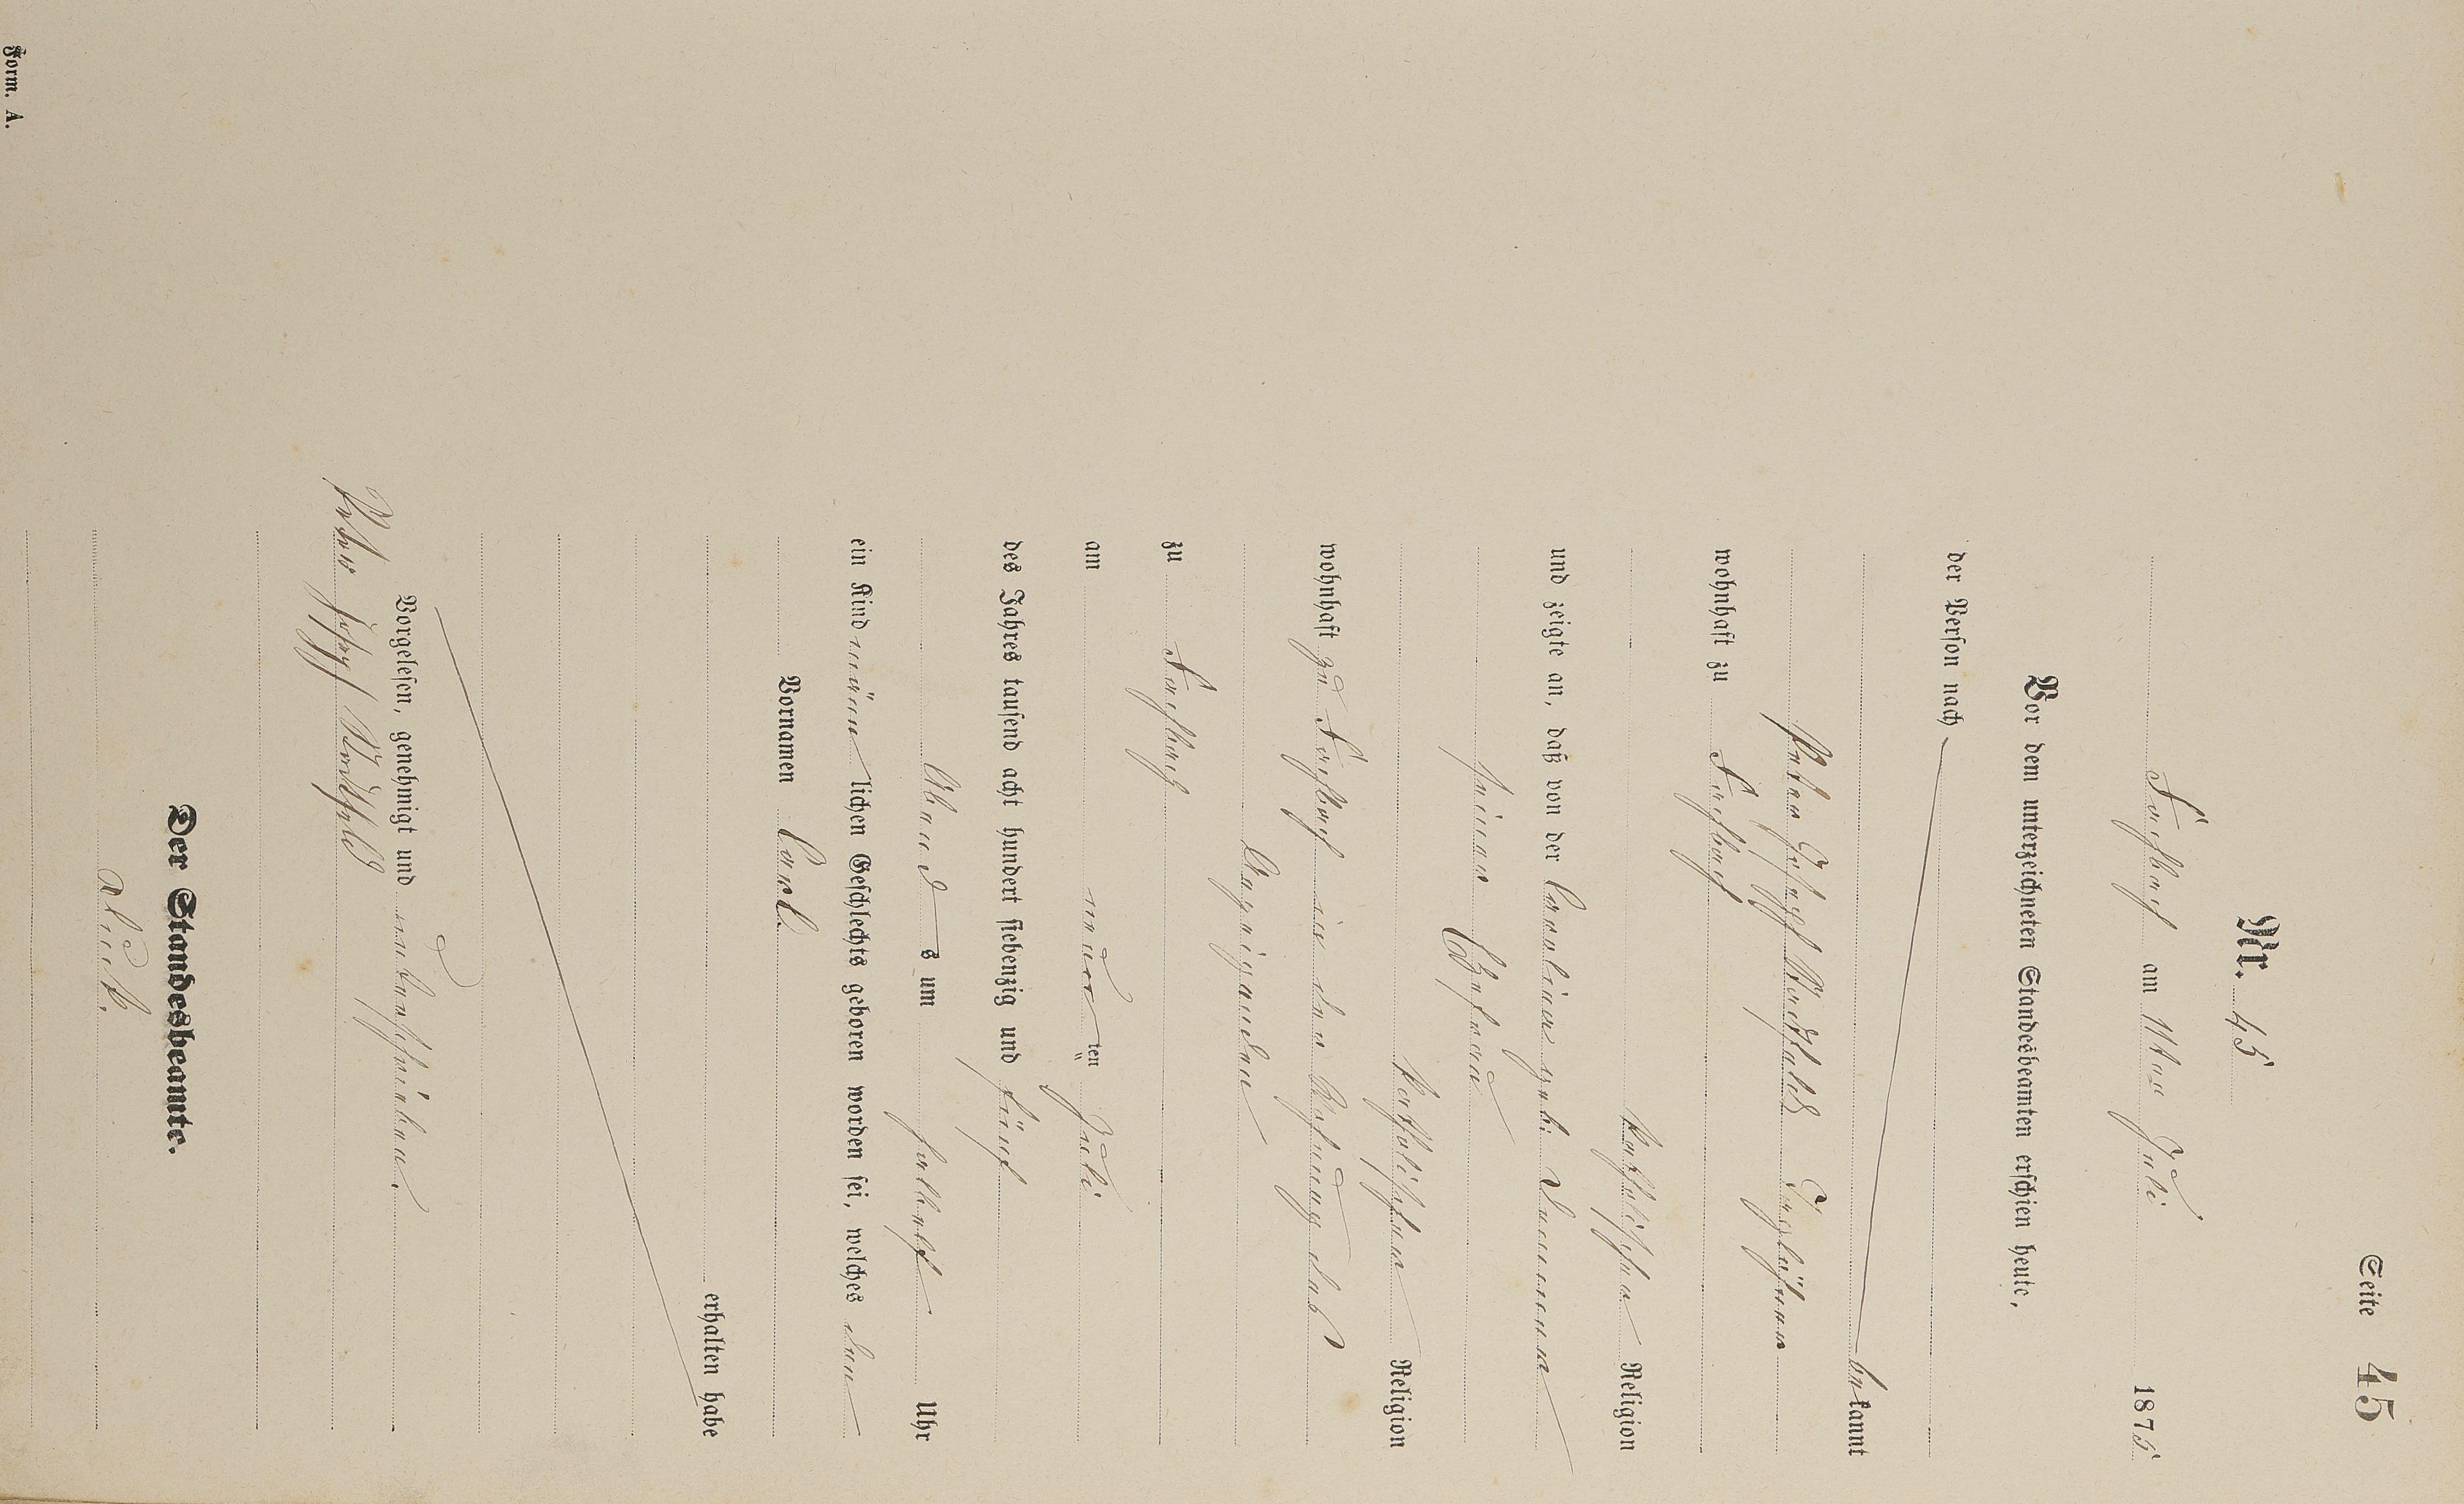 Seite 45
Nr. 45
Fischbach am 11ten Juli 1875
Vor dem unterzeichneten Standesbeamten erschien heute,
der Person nach
bekannt
Peter Joseph Taglöhner
wohnhaft zu Fischbach
katholischer Religion
und zeigte an, daß von der Caroline geb.
seiner Ehefrau
katholischer Religion
wohnhaft zu Fischbach in der Wohnung des
Anzeigenden
zu Fischbach
am ten Juli
des Jahres tausend acht hundert siebenzig und fünf
Abends um halb elf Uhr
ein Kind männlichen Geschlechts geboren worden sei, welches den
Vornamen Carl
erhalten habe
Vorgelesen, genehmigt und unterschrieben
Peter Joseph
Der Standesbeamte.
Form. A.